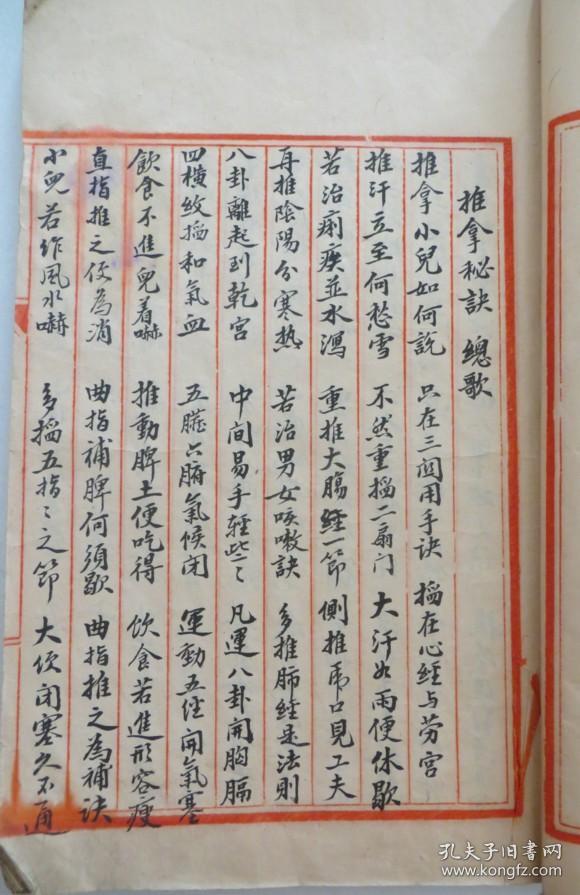 推拿秘訣 總歌
推拿小兒如何說 只在三関用手诀 搯在心經与劳宫
推汗立至何愁雪 不然重搯二扇门 大汗如雨便休歇
若治痢疾並水瀉 重推大腸經一節 側推虎口見工夫
再推陰陽分寒热 若治男女咳嗽訣 多推肺經是法則
八卦離起到乾宫 中间易手輕些〻 凡運八卦開胸膈
四横紋搯和氣血 五臟六腑氣候闭 運動五经開氣塞
飲食不進兒着嚇 推動脾土便吃得 饮食若進形容瘦
直指推之便為消 曲指補脾何須歇 曲指推之為補诀
小兒若作風水嚇 多搯五指〻之節 大便闭塞久不通
孔夫子旧书网
www.kongfz.com